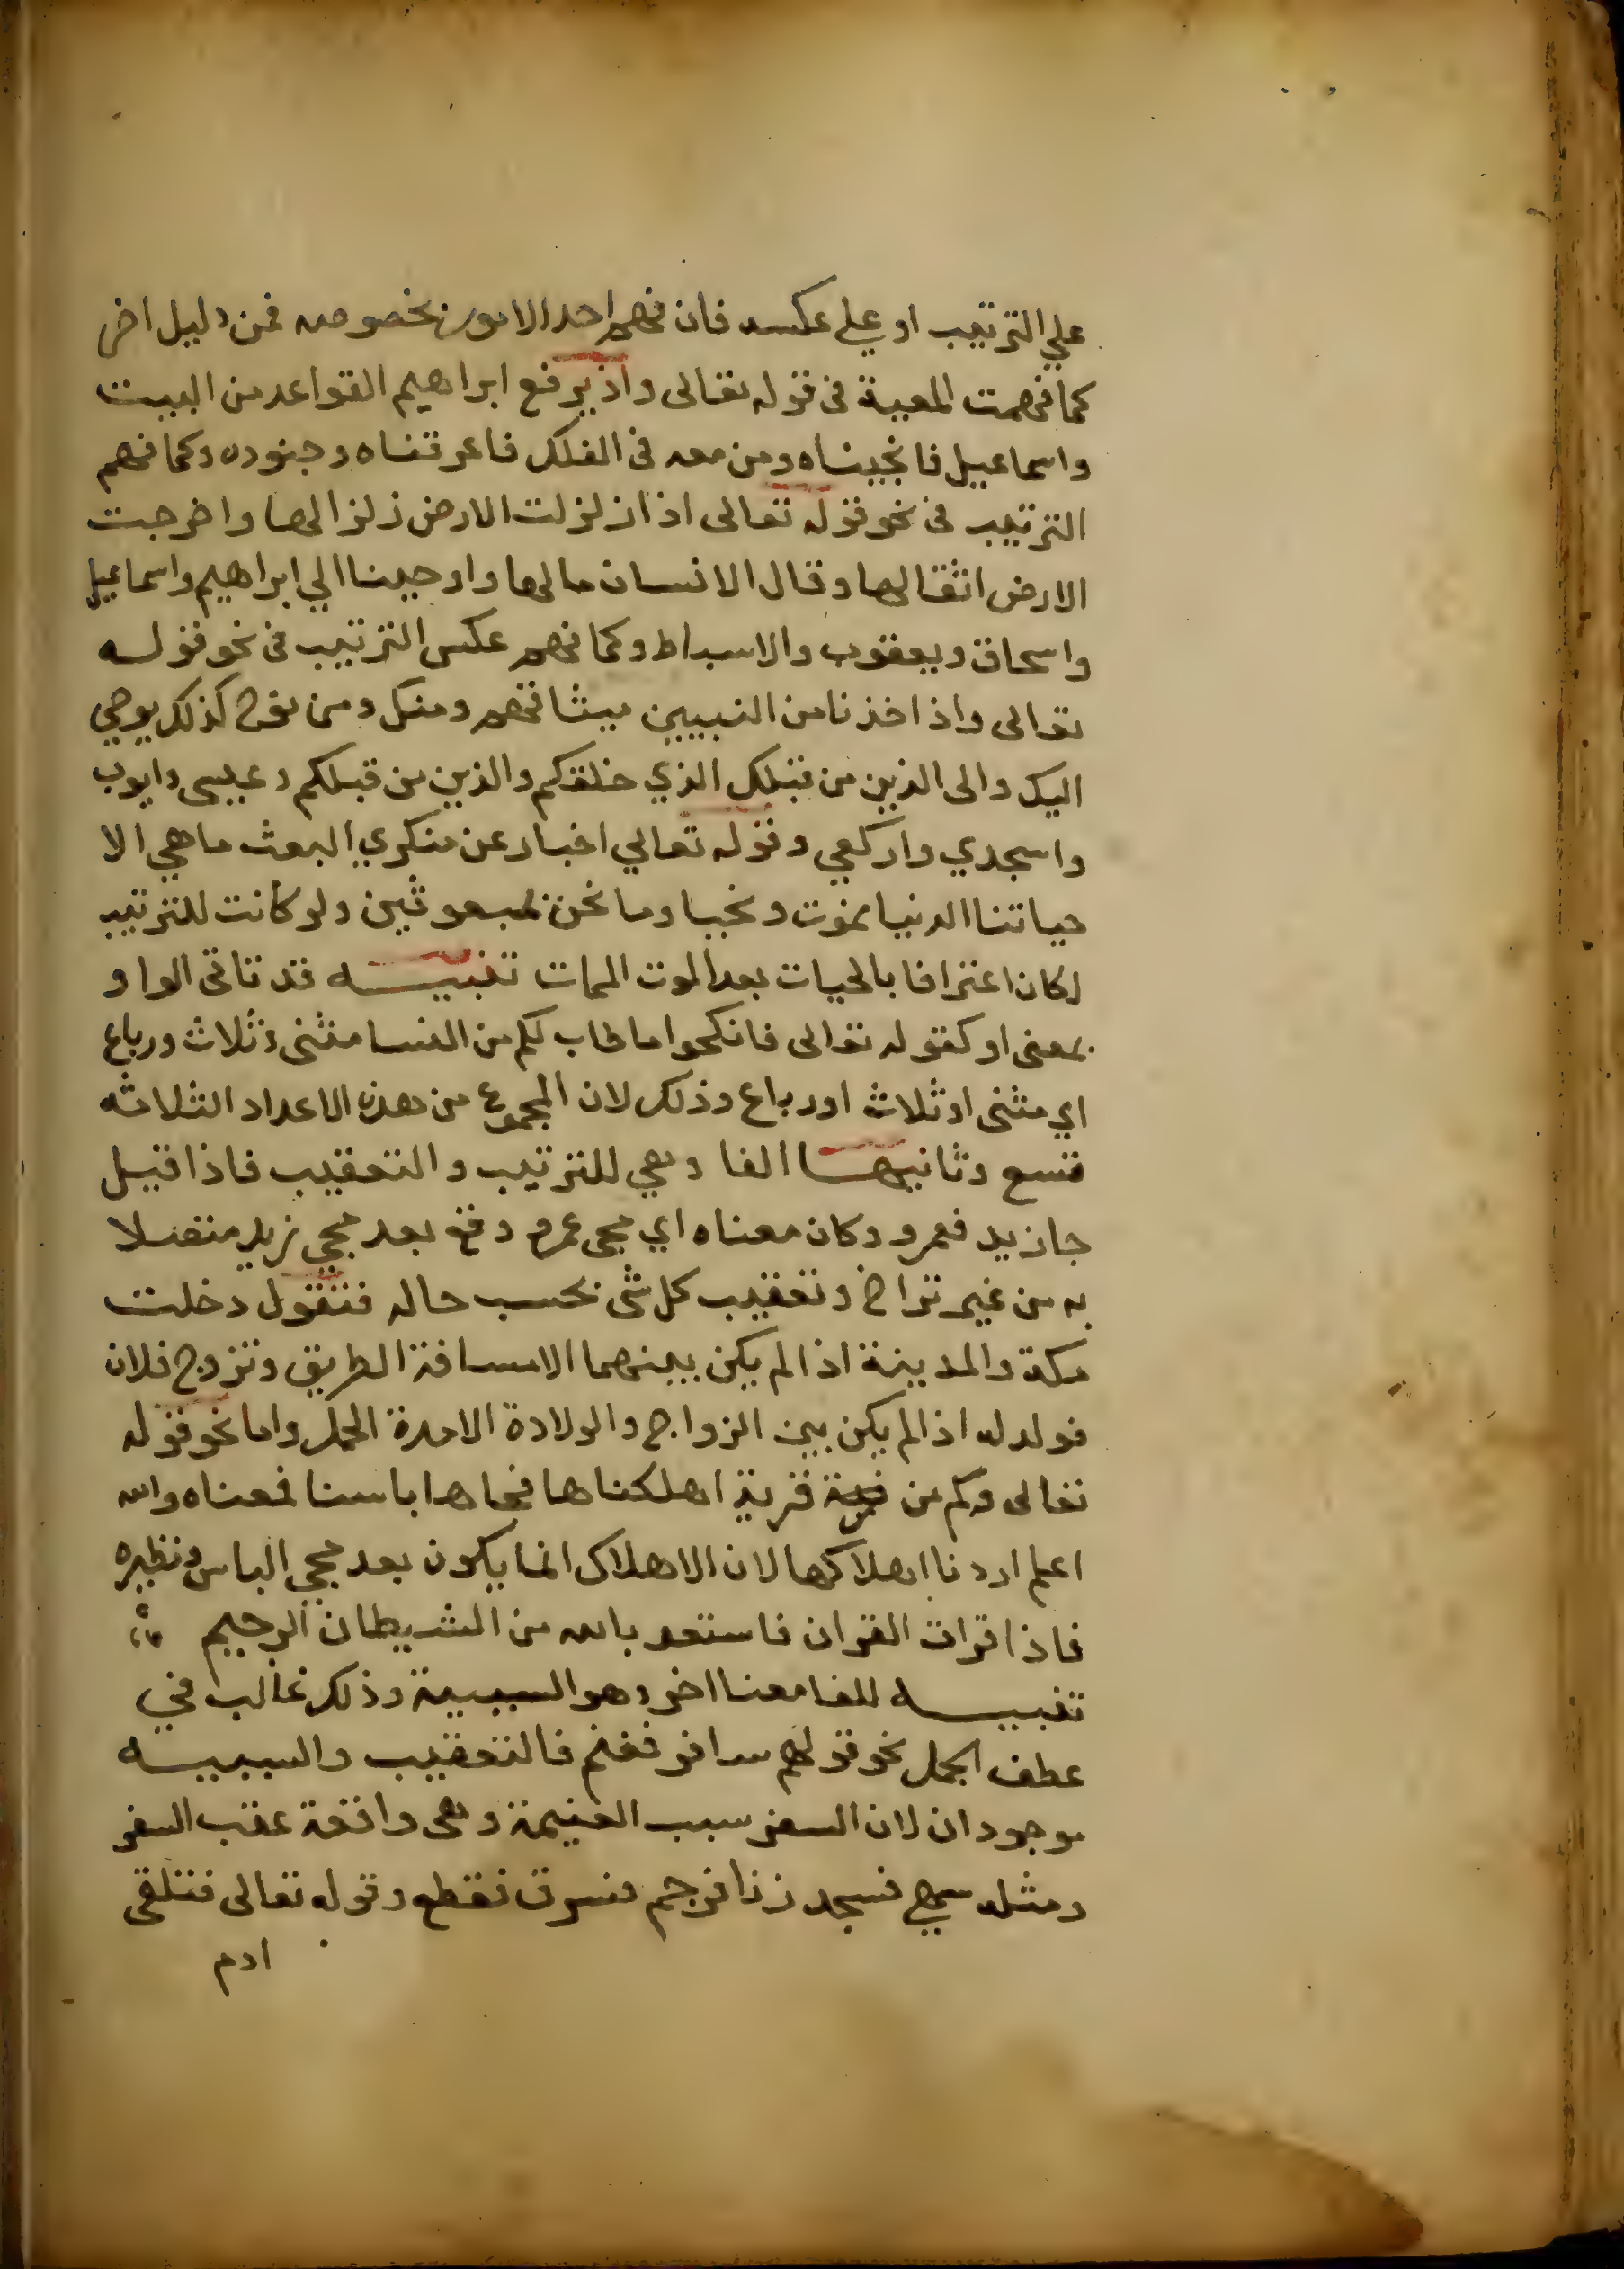 علي الترتيب او علي عكسه فان فهم احد الامور بخصوصه فمن دليل اخر
كما فهمت المعية في قوله تعالى واذ يرفع ابراهيم القواعد من البيت
واسماعيل فانجيناه ومن معه في الفلك فاغرقناه وجنوده وكما فهم
الترتيب في نحو قوله تعالى اذا زلزلت الارض زلزالها واخرجت
الارض اثقالها وقال الانسان مالها واوحينا الي ابراهيم واسماعيل
واسحاق ويعقوب والاسباط وكما فهم عكس الترتيب في نحو قوله
تعالى واذ اخذنا من النبيين ميثاقهم ومنك ومن نوح كذلك يوحي
اليك والى الذين من قبلك الذي خلقكم والذين من قبلكم وعيسى وايوب
واسجدي واركعي وقوله تعالي اخبار عن منكري البعث ما هي الا
حياتنا الدنيا نموت ونحيا وما نحن بمبعوثين ولو كانت للترتيب
لكان اعترافا بالحيات بعد الموت الممات تنبيه قد تاتي الواو
بمعنى او كقوله تعالى فانكحوا ما طاب لكم من النسا مثنى وثلاث ورباع
اي مثنى او ثلاث او رباع وذلك لان المجموع من هذه الاعداد الثلاثه
تسع وثانيها الفا وهي للترتيب والتعقيب فاذا قيل
جا زيد فعمرو وكان معناه اي مجى عمرو وقع بعد مجي زيد متصلا
به من غير تراخ وتعقيب كل شى بحسب حاله فتقول دخلت
مكة والمدينة اذا لم يكن بينهما الا مسافة الطريق وتزوج فلان
فولد له اذا لم يكن بين الزواج والولادة الا مدة الحمل واما نحو قوله
تعالى وكم من قرية اهلكناها فجاها باسنا فمعناه والله
اعلم اردنا اهلاكها لان الاهلاك انما يكون بعد مجي الباس ونظيره
فاذا قرات القران فاستعد بالله من الشيطان الرجيم
تنبيه للفا معنا اخر وهو السببية وذلك غالب في
عطف الجمل نحو قولهم سافر فغنم فالتعقيب والسببيه
موجودان لان السفر سبب الغنيمة وهى واقعة عقب السفر
ومثله سهى فسجد زنا فرجم فسرق فقطع وقوله تعالى فتلقى
ادم